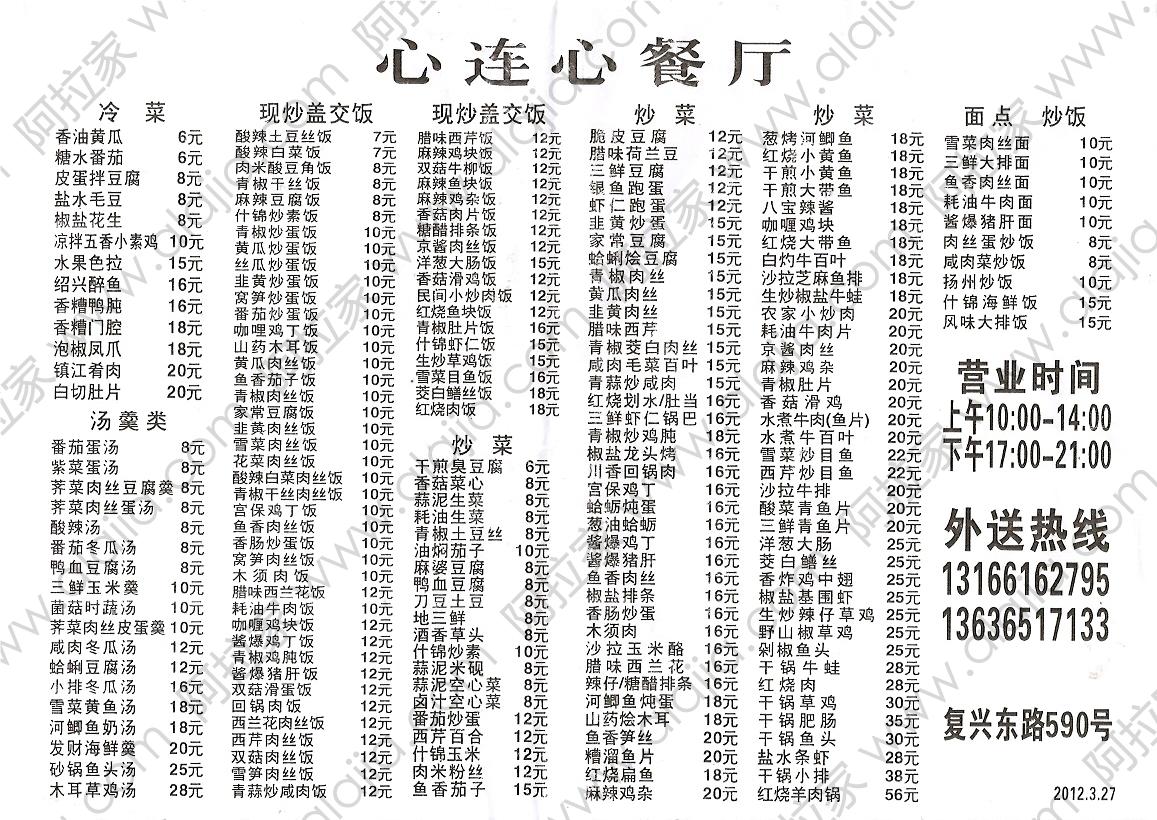 心连心餐厅
冷 菜
香油黄瓜 6元
糖水番茄 6元
皮蛋拌豆腐 8元
盐水毛豆 8元
椒盐花生 8元
凉拌五香小素鸡 10元
水果色拉 15元
绍兴醉鱼 16元
香糟鸭肫 16元
香糟门腔 18元
泡椒凤爪 18元
镇江肴肉 20元
白切肚片 20元
汤羹类
番茄蛋汤 8元
紫菜蛋汤 8元
荠菜肉丝豆腐羹 8元
荠菜肉丝蛋汤 8元
酸辣汤 8元
番茄冬瓜汤 8元
鸭血豆腐汤 8元
三鲜玉米羹 10元
菌菇时蔬汤 10元
荠菜肉丝皮蛋羹 10元
咸肉冬瓜汤 12元
蛤蜊豆腐汤 12元
小排冬瓜汤 16元
雪菜黄鱼汤 18元
河鲫鱼奶汤 18元
发财海鲜羹 20元
砂锅鱼头汤 25元
木耳草鸡汤 28元
现炒盖交饭
酸辣土豆丝饭 7元
酸辣白菜饭 7元
肉米酸豆角饭 8元
青椒干丝饭 8元
麻辣豆腐饭 8元
什锦炒素饭 8元
青椒炒蛋饭 10元
黄瓜炒蛋饭 10元
丝瓜炒蛋饭 10元
韭黄炒蛋饭 10元
窝笋炒蛋饭 10元
番茄炒蛋饭 10元
咖喱鸡丁饭 10元
山药木耳饭 10元
黄瓜肉丝饭 10元
鱼香茄子饭 10元
青椒肉丝饭 10元
家常豆腐饭 10元
韭黄肉丝饭 10元
雪菜肉丝饭 10元
花菜肉丝饭 10元
酸辣白菜肉丝饭 10元
青椒干丝肉丝饭 10元
宫保鸡丁饭 10元
鱼香肉丝饭 10元
香肠炒蛋饭 10元
窝笋肉丝饭 10元
木须肉饭 10元
腊味西兰花饭 12元
耗油牛肉饭 10元
咖喱鸡块饭 12元
酱爆鸡丁饭 12元
青椒鸡肫饭 12元
酱爆猪肝饭 12元
双菇滑蛋饭 12元
回锅肉饭 12元
西兰花肉丝饭 12元
西芹肉丝饭 12元
双菇肉丝饭 12元
雪笋肉丝饭 12元
青蒜炒咸肉饭 12元
现炒盖交饭
腊味西芹饭 12元
麻辣鸡块饭 12元
双菇牛柳饭 12元
麻辣鱼块饭 12元
麻辣鸡杂饭 12元
香菇肉片饭 12元
糖醋排条饭 12元
京酱肉丝饭 12元
洋葱大肠饭 15元
香菇滑鸡饭 12元
民间小炒肉饭 12元
红烧鱼块饭 12元
青椒肚片饭 16元
什锦虾仁饭 15元
生炒草鸡饭 15元
雪菜目鱼饭 16元
茭白鳝丝饭 18元
红烧肉饭 18元
炒 菜
干煎臭豆腐 6元
香菇菜心 8元
蒜泥生菜 8元
耗油生菜 8元
青椒土豆丝 8元
油焖茄子 10元
麻婆豆腐 8元
鸭血豆腐 8元
刀豆土豆 8元
地三鲜 8元
酒香草头 8元
什锦炒素 10元
蒜泥米砚 8元
蒜泥空心菜 8元
卤汁空心菜 8元
番茄炒蛋 12元
西芹百合 12元
什锦玉米 12元
肉米粉丝 12元
鱼香茄子 15元
炒 菜
脆皮豆腐 12元
腊味荷兰豆 12元
三鲜豆腐 12元
银鱼跑蛋 12元
虾仁跑蛋 12元
韭黄炒蛋 15元
家常豆腐 12元
蛤蜊烩豆腐 12元
青椒肉丝 15元
黄瓜肉丝 15元
韭黄肉丝 15元
腊味西芹 15元
青椒茭白肉丝 15元
咸肉毛菜百叶 15元
青蒜炒咸肉 15元
红烧划水/肚当 16元
三鲜虾仁锅巴 16元
青椒炒鸡肫 18元
椒盐龙头烤 16元
川香回锅肉 16元
宫保鸡丁 16元
蛤蛎炖蛋 16元
葱油蛤蛎 16元
酱爆鸡丁 16元
酱爆猪肝 16元
鱼香肉丝 16元
椒盐排条 16元
香肠炒蛋 16元
木须肉 16元
沙拉玉米酪 16元
腊味西兰花 16元
辣仔/糖醋排条 16元
河鲫鱼炖蛋 18元
山药烩木耳 18元
鱼香笋丝 20元
糟溜鱼片 20元
红烧扁鱼 18元
麻辣鸡杂 20元
炒 菜
葱烤河鲫鱼 18元
红烧小黄鱼 18元
干煎小黄鱼 18元
干煎大带鱼 18元
八宝辣酱 18元
咖喱鸡块 18元
红烧大带鱼 18元
白灼牛百叶 18元
沙拉芝麻鱼排 18元
生炒椒盐牛蛙 18元
农家小炒肉 20元
耗油牛肉片 20元
京酱肉丝 20元
麻辣鸡杂 20元
青椒肚片 20元
香菇滑鸡 20元
水煮牛肉(鱼片) 20元
水煮牛百叶 20元
雪菜炒目鱼 22元
西芹炒目鱼 22元
沙拉牛排 20元
酸菜青鱼片 20元
三鲜青鱼片 20元
洋葱大肠 25元
茭白鳝丝 25元
香炸鸡中翅 25元
椒盐基围虾 25元
生炒辣仔草鸡 25元
野山椒草鸡 25元
剁椒鱼头 25元
干锅牛蛙 28元
红烧肉 28元
干锅草鸡 30元
干锅肥肠 35元
干锅鱼头 30元
盐水条虾 28元
干锅小排 38元
红烧羊肉锅 56元
面点 炒饭
雪菜肉丝面 10元
三鲜大排面 10元
鱼香肉丝面 10元
耗油牛肉面 10元
酱爆猪肝面 10元
肉丝蛋炒饭 8元
咸肉菜炒饭 8元
扬州炒饭 10元
什锦海鲜饭 15元
风味大排饭 15元
营业时间
上午10:00-14:00
下午17:00-21:00
外送热线
13166162795
13636517133
复兴东路590号
2012.3.27
阿拉家 www.alajia.com